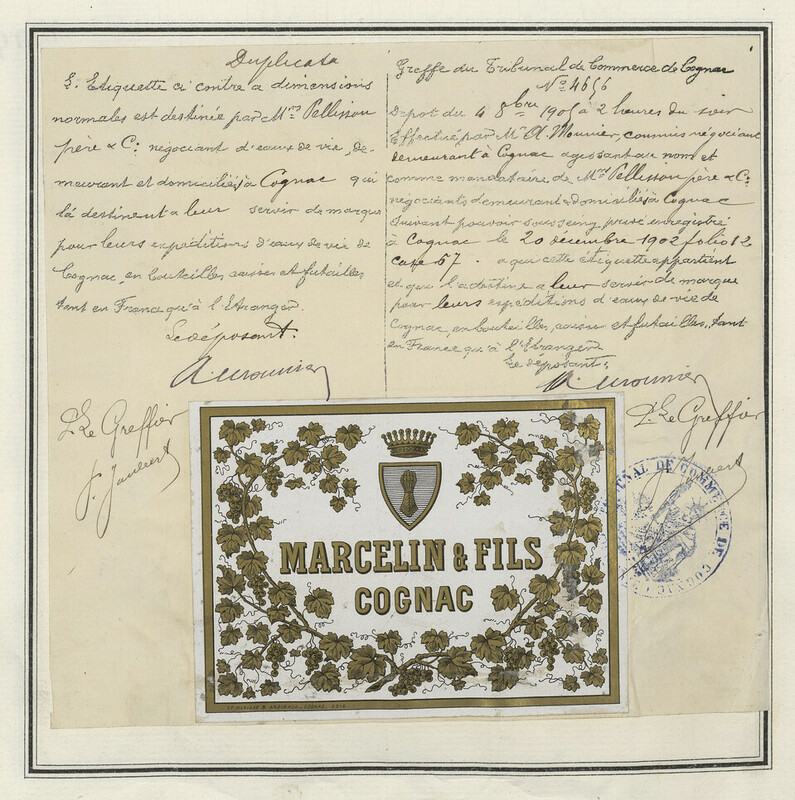 Duplicata
L'Etiquette ci contre a dimensions
normales est destinée par Mrs Pellisson
père & Cie négociant d'eaux de vie, de-
meurant et domiciliés à Cognac qui
la destinent a leur servir de marque
pour leurs expéditions d'eaux de vie de
Cognac, en bouteilles, caisses et futailles
tant en France qu'à l'Etranger.
Le déposant.
A. Mounier
P. Le Greffier
Greffe du Tribunal de Commerce de Cognac
No 4656
Depot du 4 8bre 1905 à 2 heures du soir
Effectué par Mr A. Mounier, commis négociant
demeurant à Cognac agissant au nom et
comme mandataire de Mrs Pellisson père & Cie
négociants demeurant & domiciliés à Cognac
suivant pouvoir sous seing privé enregistré
à Cognac le 20 décembre 1902 folio 12
case 57. a qui cette étiquette appartient
et qui l'a destine a leur servir de marque
pour leurs expéditions d'eaux de vie de
Cognac, en bouteilles, caisses et futailles, tant
en France qu'à l'Etranger
Le déposant.
A. Mounier
P. Le Greffier
TRIBUNAL DE COMMERCE DE COGNAC
MARCELIN & FILS
COGNAC